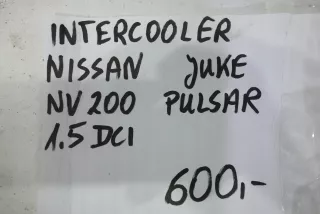 INTERCOOLER
NISSAN JUKE
NV200 PULSAR
1.5 DCI
600,-